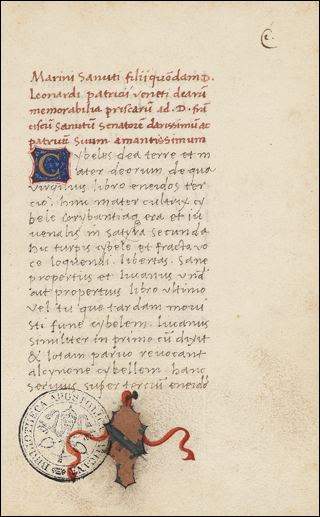 Marini Sanuti filii quōdam D.
Leonardi patricii veneti dearū
memorabilia priscarum ad. D. frā
ciscū Sanutū senatorē clarissimū ac
patruū Suum amantissimum
Cybeles dea terre et m
ater deorum de qua
virgilius libro eneidos ter
cio. hinc mater cultrix cy
bele corybantiaq era et iu
venalis in satyra secunda
hic turpis cybele et fracta vo
ce loquendi. libertas. Sane
propertius et lucanus
aut propertius libro ultimo
vel tu que tardam movi
sti fune cybelem. lucanus
similiter in primo cū dixit
& lotam parvo revocant
almone cybellem. hanc
servius super terciū eneidō
BIBLIOTHECA APOSTOLICA VATICANA